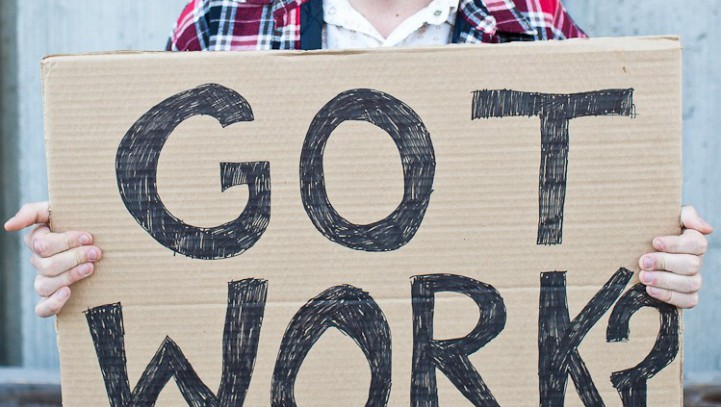 GOT
WORK?